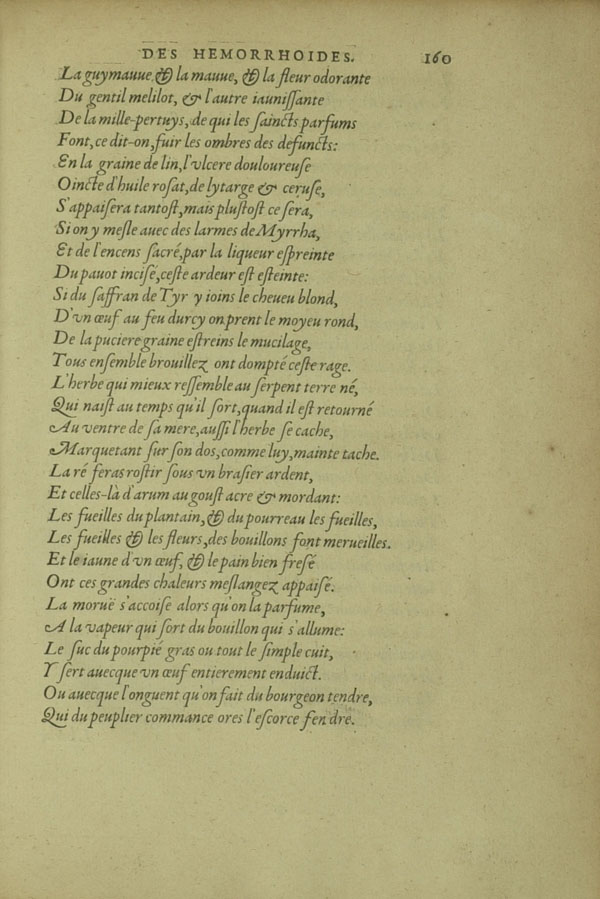 DES HEMORRHOIDES. 160
La guymauue, & la mauue, & la fleur odorante
Du gentil melilot, & l'autre iauniſſante
De la mille-pertuys, de qui les ſaincts parfums
Font, ce dit-on, fuir les ombres des defuncts:
En la graine de lin, l'vlcere douloureuſe
Oincte d'huile roſat, de lytarge & ceruſe,
S'appaiſera tantoſt, mais pluſtoſt ce ſera,
Si on y meſle auec des larmes de Myrrha,
Et de l'encens ſacré, par la liqueur eſpreinte
Du pauot inciſé, ceſte ardeur eſt eſteinte:
Si du ſaffran de Tyr y ioins le cheueu blond,
D'vn œuf au feu durcy on prent le moyeu rond,
De la puciere graine eſtreins le mucilage,
Tous enſemble brouillez ont dompté ceſte rage.
L'herbe qui mieux reſſemble au ſerpent terre né,
Qui naiſt au temps qu'il ſort, quand il eſt retourné
Au ventre de ſa mere, auſſi l'herbe ſe cache,
Marquetant ſur ſon dos, comme luy, mainte tache.
La ré feras roſtir ſous vn braſier ardent,
Et celles-là d'arum au gouſt acre & mordant:
Les fueilles du plantain, & du pourreau les fueilles,
Les fueilles & les fleurs, des bouillons font merueilles.
Et le iaune d'vn œuf, & le pain bien freſé
Ont ces grandes chaleurs meſlangez appaiſé.
La moruë s'accoiſe alors qu'on la parfume,
A la vapeur qui ſort du bouillon qui s'allume:
Le ſuc du pourpié gras ou tout le ſimple cuit,
Y ſert auecque vn œuf entierement enduict.
Ou auecque l'onguent qu'on fait du bourgeon tendre,
Qui du peuplier commance ores l'eſcorce fendre.